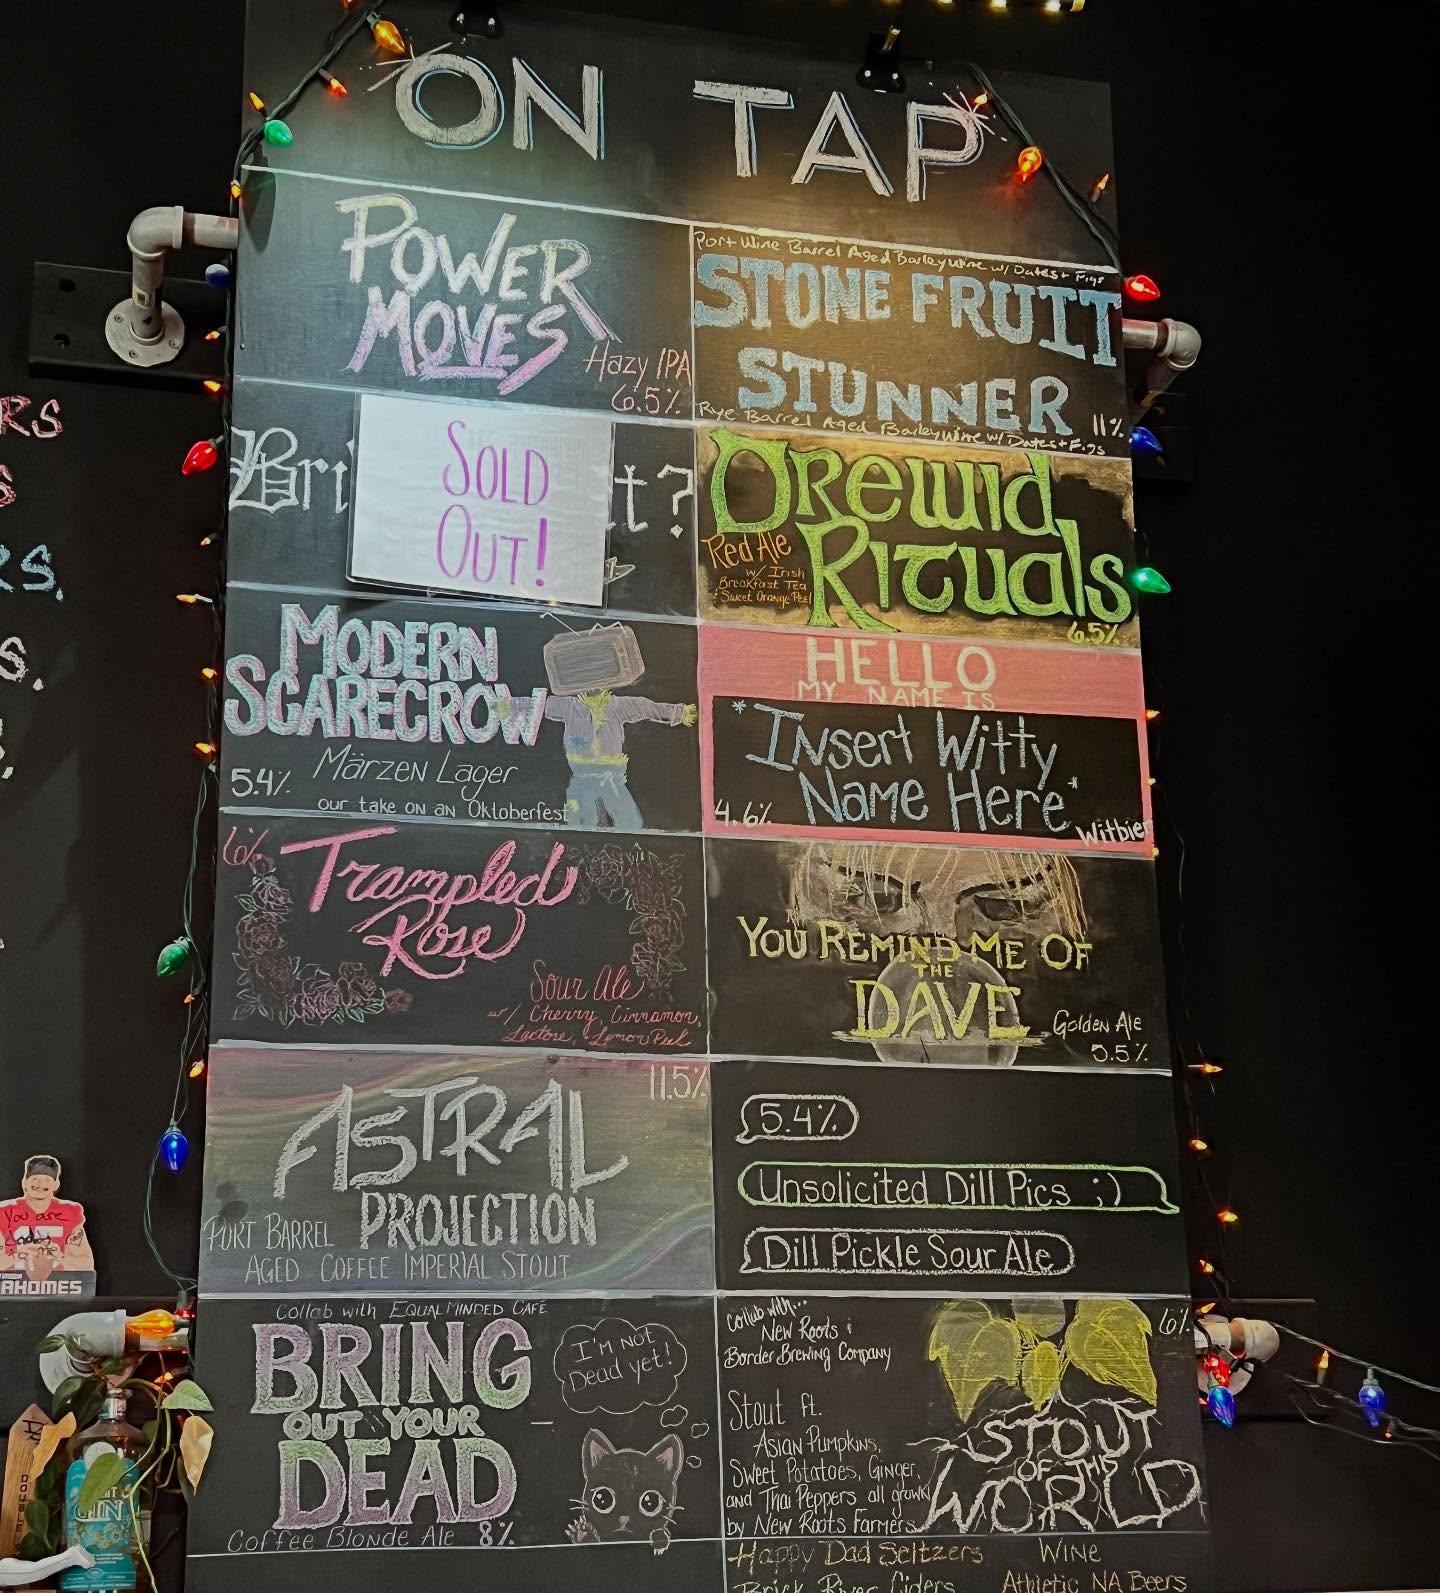 ON TAP
POWER
MOVES
Hazy IPA
6.5%
Port Wine Barrel Aged Barleywine w/ Dates + Figs
STONE FRUIT
STUNNER
11%
Rye Barrel Aged Barleywine w/ Dates + Figs
Bri
t?
SOLD
OUT!
DREWID
RITUALS
Red Ale
w/ Irish
Breakfast Tea
& Sweet Orange Peel
6.5%
MODERN
SCARECROW
5.4% Märzen Lager
our take on an Oktoberfest
HELLO
MY NAME IS
*Insert Witty
Name Here*
4.6%
Witbier
6%
Trampled
Rose
Sour Ale
w/ Cherry, Cinnamon,
Lactose, & Lemon Peel
YOU REMIND ME OF
THE
DAVE
Golden Ale
5.5%
11.5%
ASTRAL
PROJECTION
PORT BARREL
AGED COFFEE IMPERIAL STOUT
5.4%
Unsolicited Dill Pics ;)
Dill Pickle Sour Ale
Collab with EQUAL MINDED CAFÉ
BRING
OUT YOUR
DEAD
Coffee Blonde Ale 8%
I'm not
Dead yet!
collab with...
New Roots &
Border Brewing Company
6%
Stout ft.
Asian Pumpkins,
Sweet Potatoes, Ginger,
and Thai Peppers all grown
by New Roots Farmers
STOUT
OF THIS
WORLD
Happy Dad Seltzers
WINE
Brick River Ciders
Athletic NA Beers
RS
S
RS.
S.
You are
AHOMES
GIN